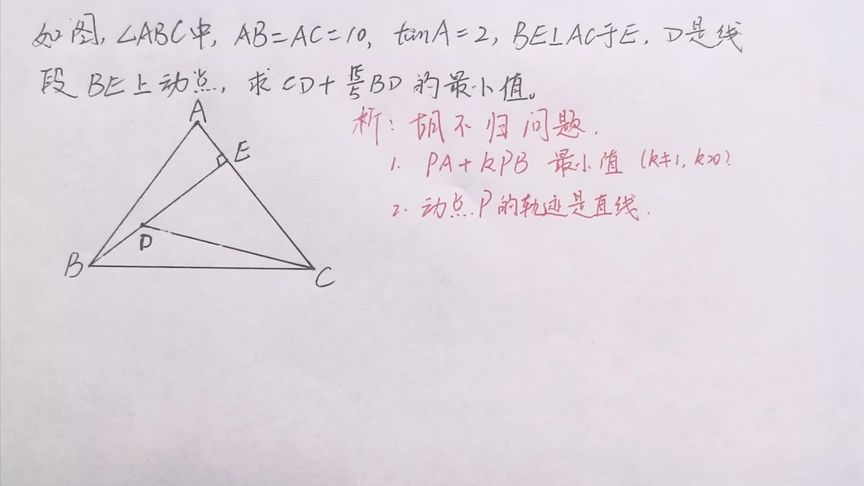 如图,∠ABC中,AB=AC=10,tanA=2,BE⊥AC于E,D是线
段BE上动点,求CD+√5/5BD的最小值。
析:胡不归问题.
1. PA+kPB 最小值(k≠1,k>0)
2. 动点P的轨迹是直线.
A
E
D
B
C